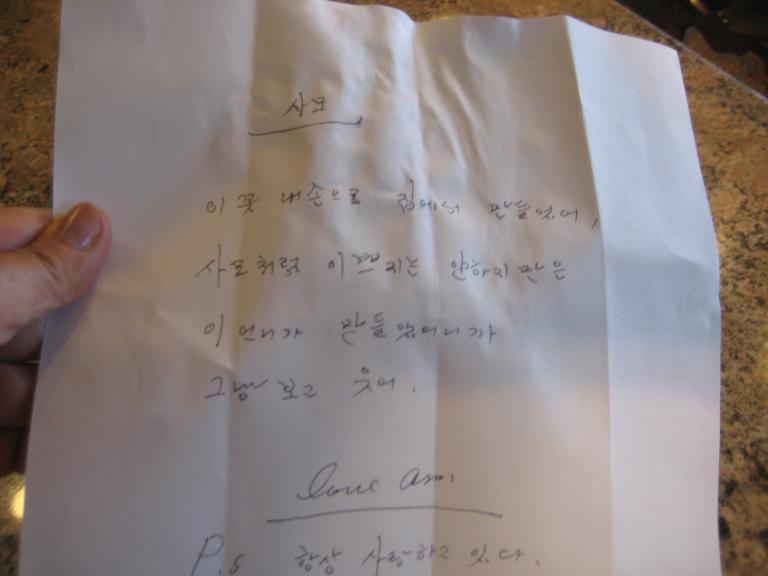 사모
이 꽃 내손으로 집에서 만들었어,
사모처럼 이쁘지는 안하지만은
이 언니가 만들었어니까
그냥 보고 웃어.
love
P.S 항상 사랑하고 있다.